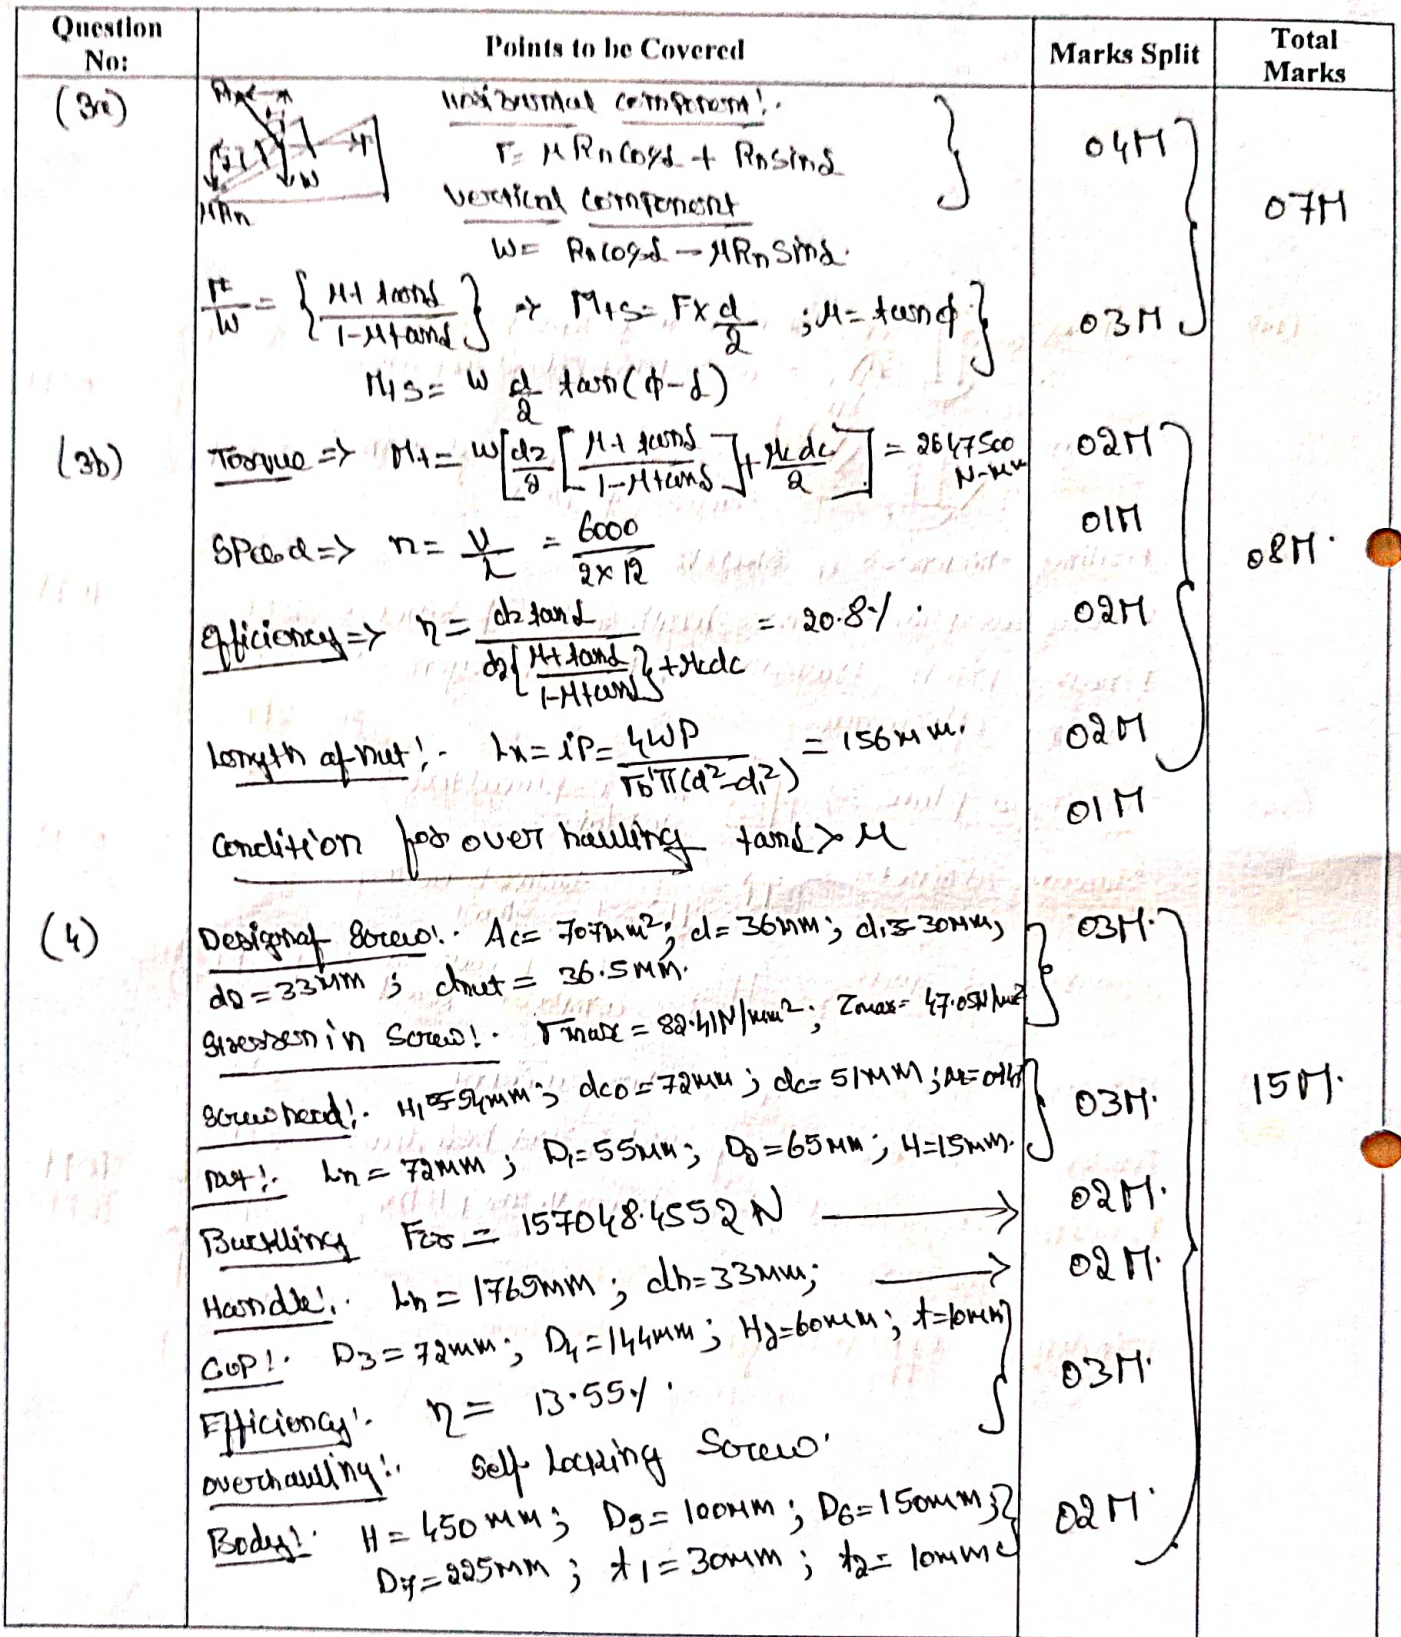 Question No:
Points to be Covered
Marks Split
Total Marks
(3a)
Horizontal component:-
F = μRn cosα + Rn sinα
04M
Vertical component
07M
W
μRn
W = Rn cosα - μRn sinα.
F/W = { μ + tanα / 1 - μ tanα } => Mts = F x d/2 ; μ = tanφ
03M
Mts = W d/2 tan(φ-α)
(3b)
Torque => Mt = W[ d2/2 [ μ + tanα / 1 - μ tanα ] + μc dc/2 ] = 2647500 N-mm
02M
Speed => n = v/L = 6000 / 2x12
01M
08M.
Efficiency => η = d2 tanα / d2{ μ + tanα / 1 - μ tanα } + μc dc = 20.8%.
02M
Length of nut:- Ln = iP = 4WP / σb'π(d²-d1²) = 156mm.
02M
Condition for over hauling tanα > μ
01M
(4)
Design of Screw:- Ac = 707mm²; d = 36mm; d1 = 30mm;
03M.
d2 = 33mm ; dnut = 36.5mm.
Stresses in Screw:- σmax = 82.41N/mm²; τmax = 47.05N/mm²
Screw head:- H1 = 54mm ; dco = 72mm ; dc = 51mm ;
03M.
15M.
Nut:- Ln = 72mm ; D1 = 55mm ; D2 = 65mm ; H = 15mm.
Buckling Fcr = 157048.4552 N
02M.
Handle:- Lh = 1765mm ; dh = 33mm;
02M.
Cup:- D3 = 72mm ; D4 = 144mm ; H2 = 60mm ; t = 10mm
03M.
Efficiency:- η = 13.55%.
overhauling:- Self Locking Screw.
Body:- H = 450mm ; D5 = 100mm ; D6 = 150mm ;
02M.
D7 = 225mm ; t1 = 30mm ; t2 = 10mm